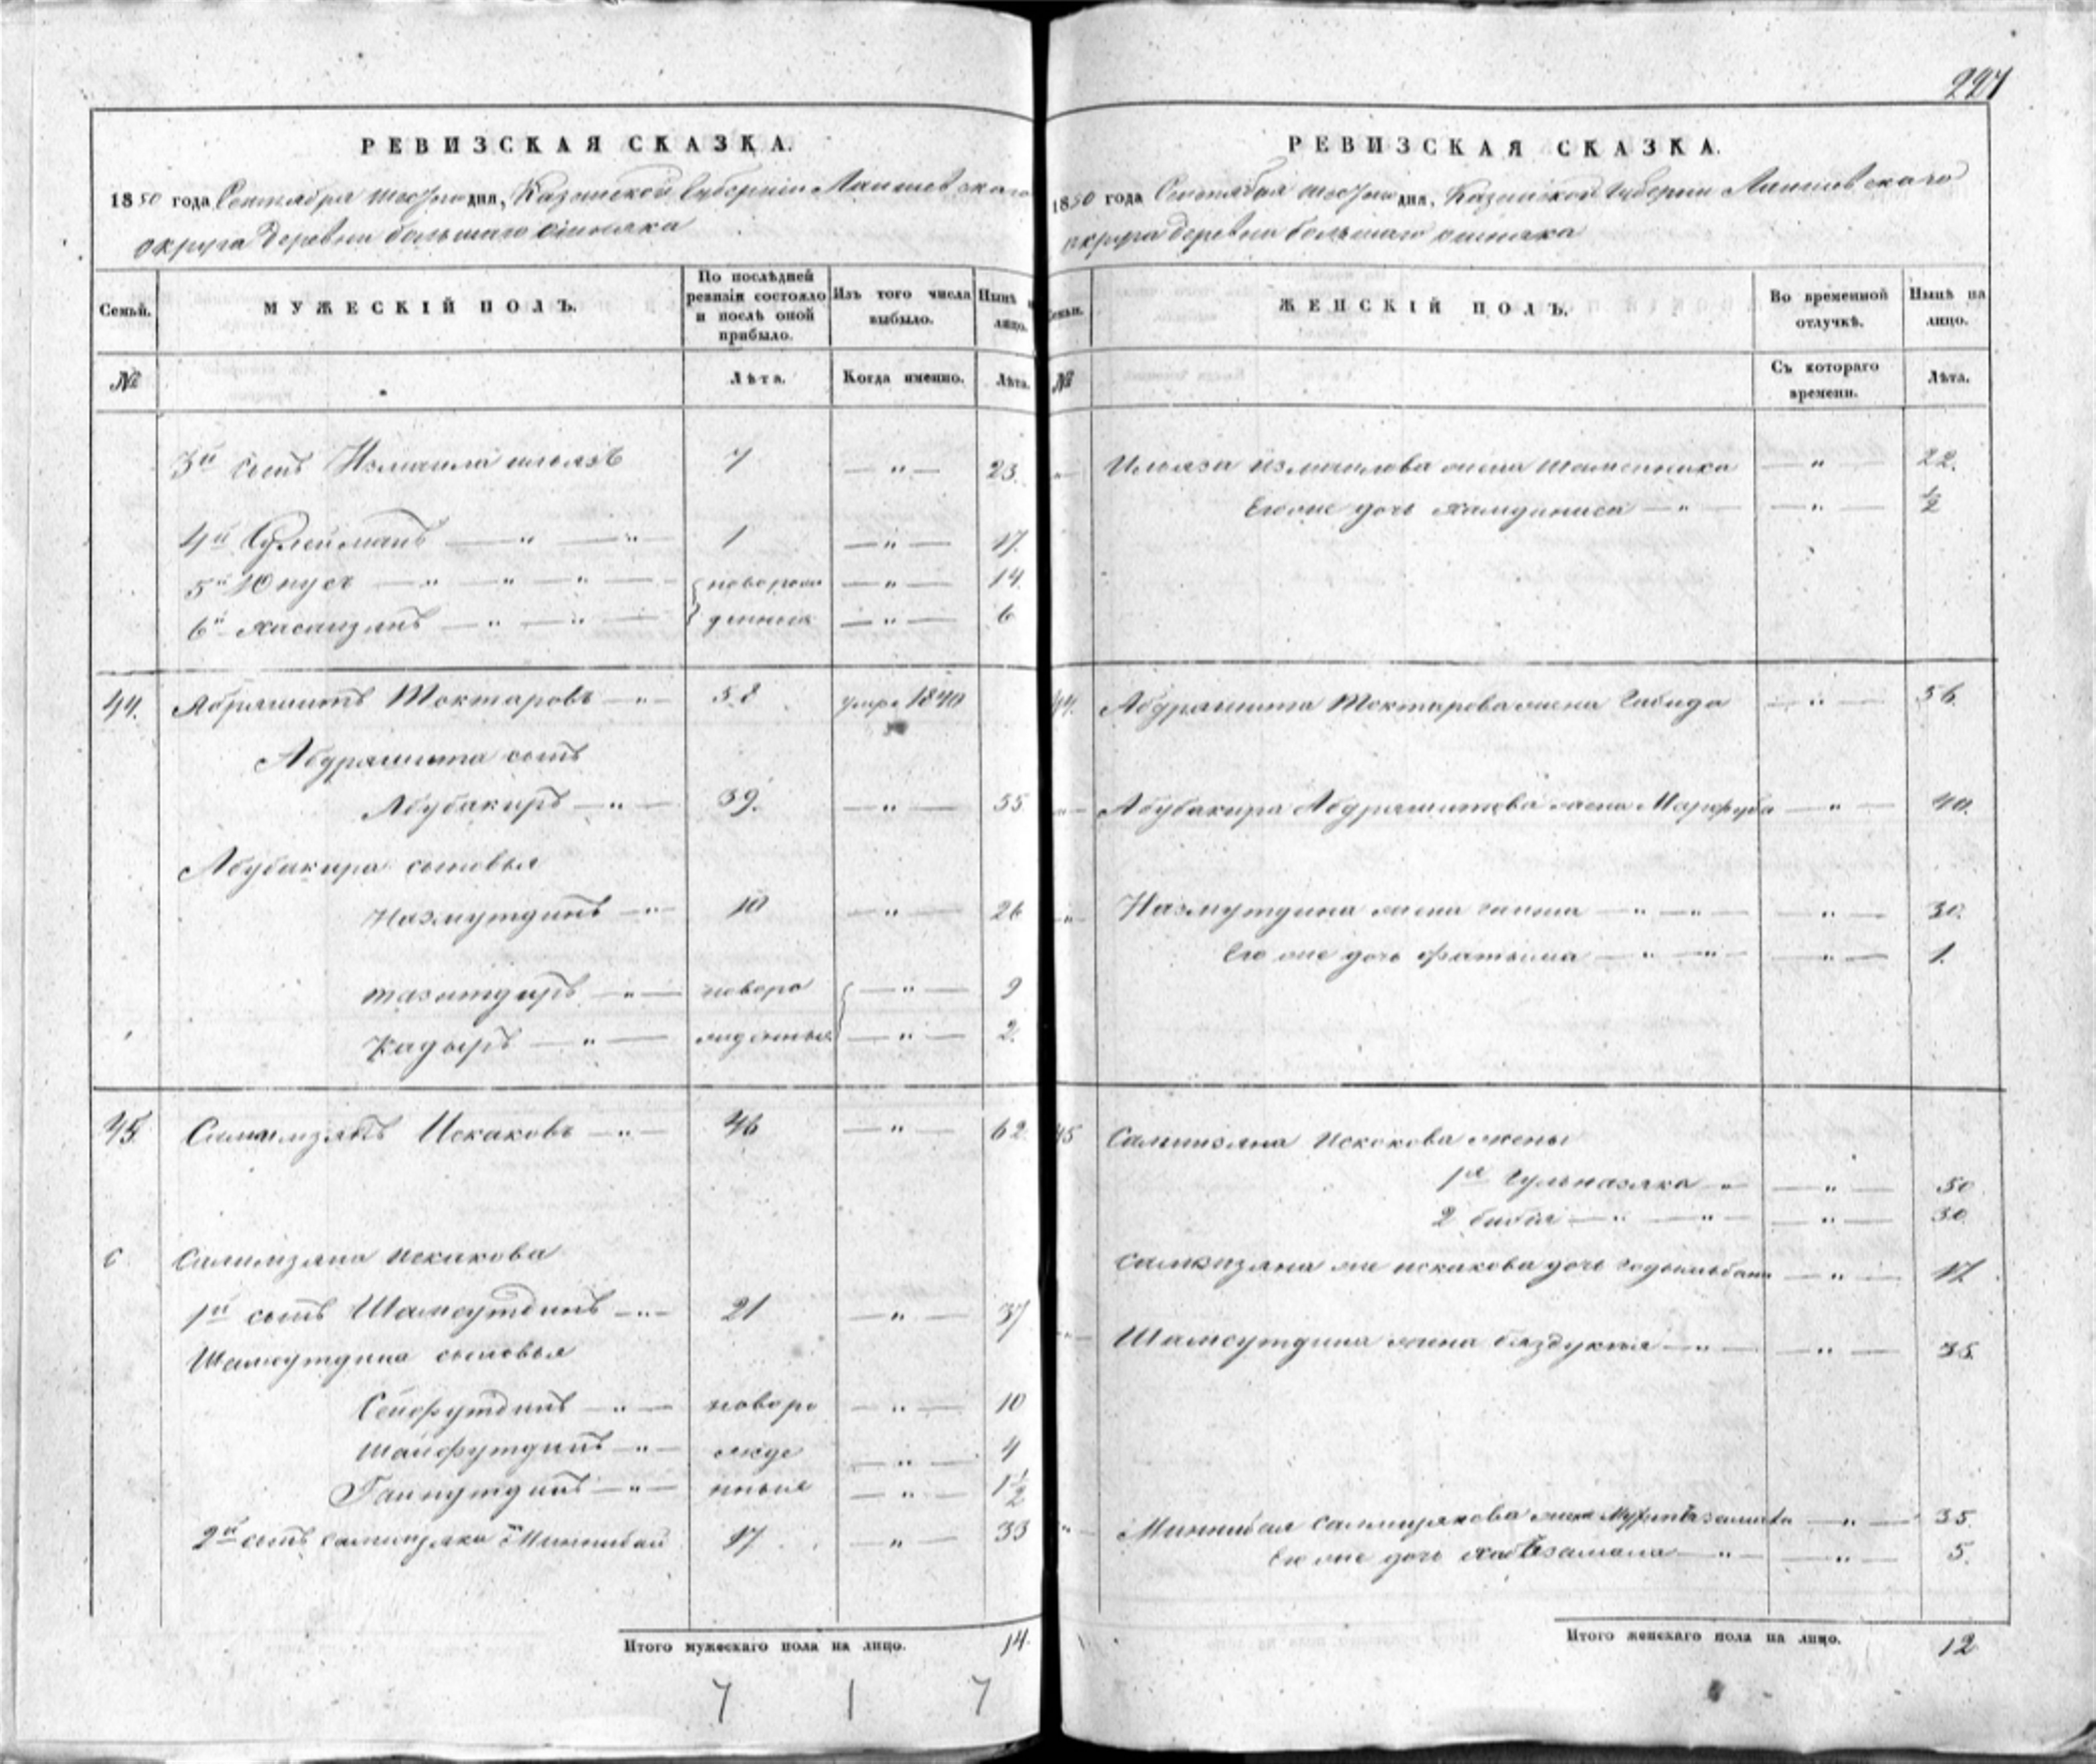 227
РЕВИЗСКАЯ СКАЗКА.
1850 года Сентября дня, Казанской Губерніи Лаишевскаго
округа деревни большаго
Семьи.
МУЖЕСКІЙ ПОЛЪ.
По послѣдней ревизіи состояло и послѣ оной прибыло.
Изъ того числа выбыло.
Нынѣ на лицо.
№
Лѣта.
Когда именно.
Лѣта.
3й сынъ Измаила ильязъ 7 — " — 23.
4й Сулейманъ — " — " 1 — " — 17.
5й Юнусъ — " — " — " — новорож — " — 14.
6й хасанзянъ — " — " — денныя — " — 6
44. Абряшитъ Токтаровъ — " — 58 умре 1840
Абдряшита сынъ
Абубакиръ — " — 39. — " — 55
Абубакира сыновья
Назмутдинъ — " 10 — " — 26
тазитдинъ — " — новоро — " — 9
Кадыръ — " — жденные — " — 2.
45. Салимзянъ Искаковъ — " — 46 — " — 62.
Салимзяна искакова
1й сынъ Шамсутдинъ — " — 21 — " — 37
Шамсутдина сыновья
Сейфутдинъ — " — новоро — " — 10
Шайфутдинъ — " — жде — " — 4
Гайнутдинъ — " — нные — " — 1 1/2
2й сынъ Миннибай 17 — " — 33
Итого мужескаго пола на лицо. 14.
7 1 7
РЕВИЗСКАЯ СКАЗКА.
1850 года Сентября дня, Казанской Губерніи Лаишевскаго
округа деревни большаго
Семьи.
ЖЕНСКІЙ ПОЛЪ.
Во временной отлучкѣ.
Нынѣ на лицо.
№
Съ котораго времени.
Лѣта.
" — Ильяза измаилова жена — " — 22.
Его же дочь — " — — " — 1/2
44. Абдряшита Токтарова жена Габида — " — 56.
" — Абубакира Абдряшитова жена Марфуба — " — 40.
" — Назмутдина жена — " — " — — " — 30.
Его же дочь фатыма — " — " — — " — 1.
45 Салимзяна Искокова жены
1я Гульназяка — " — — " — 50
2 биби — " — " — — " — 30
Салимзяна же искакова дочь — " — 17
" — Шамсутдина жена — " — — " — 35.
" — Миннибая жена — " — 35.
Его же дочь — " — — " — 5.
Итого женскаго пола на лицо. 12